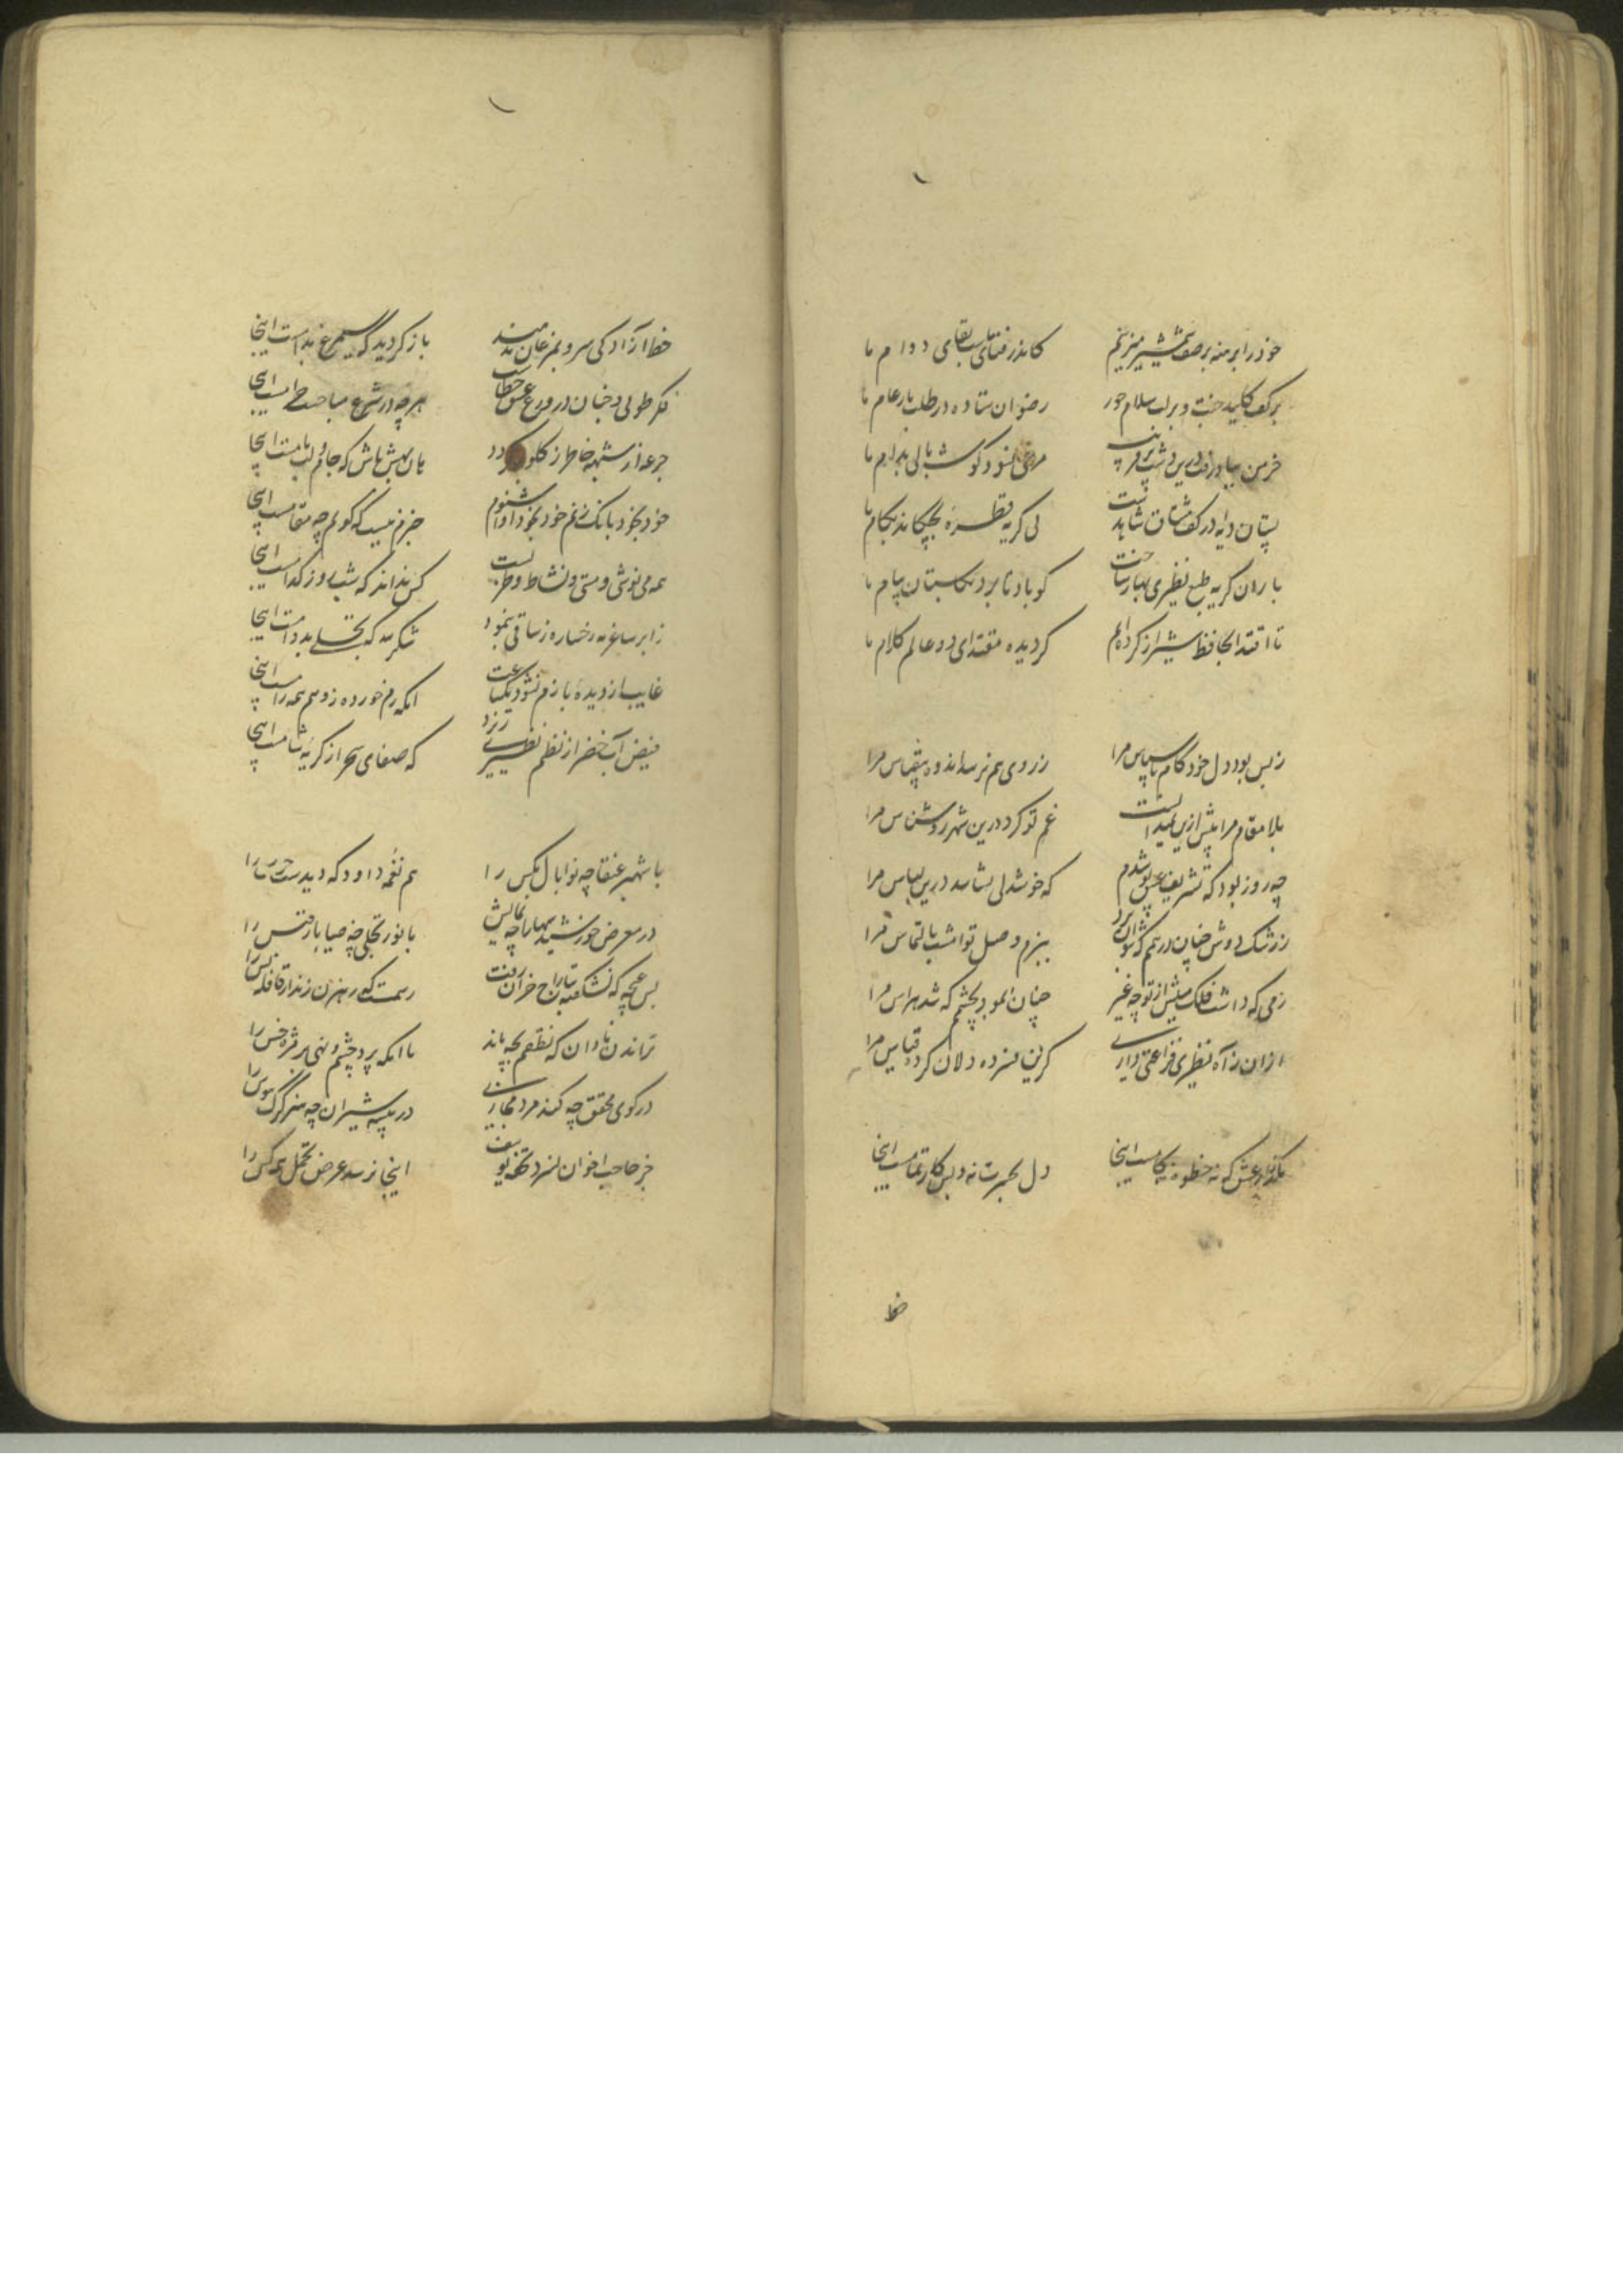 خود را برهنه بر صف شمشیر میزنیم کاندر فنای ماست بقای دوام ما
بر کف کلید جنت و بر لب سلام حور رضوان ستاده در طلب بار عام ما
خرمن بباد رفت درین دشت پر فریب مرغی نشود گوشه بالی بدام ما
پستان دایه در کف مشتاق شاهد است بی گریه قطره بچکاند بکام ما
باران گریه طبع نظیری بهار ساخت کو باد تا برد بگلستان پیام ما
تا اقتدا بحافظ شیراز کرده‌ایم گردیده مقتدای دو عالم کلام ما
ز بس بود دل خودکام ناسپاس مرا ز روی هم نرساند وه بقیاس مرا
بلا مقام مرا پیش ازین نمیدانست غم تو کرد درین شهر روشناس مرا
چه روز بود که تشریف عشق پوشیدم که خوشدلی نشناسد درین لباس مرا
ز رشک دوش چنان درهم که نتوان برد ببزم وصل تو امشب بالتماس مرا
رمی که داشت فلک پیش از توجه غیر چنان نمود بچشمم که شد هراس مرا
ازان ز آه نظیری فراغتی داری کزین فسرده دلان کرده قیاس مرا
پا بگذار عشق که نه حظ و نه کامست اینجا دل بحیرت نه و بس کار تمامست اینجا
خط آزادگی سرو بمرغان ندهند باز گردید که سیمرغ بدامست اینجا
فکر طوبی و جنان در ورع عشق خطاست هر چه در شرع مباحست حرامست اینجا
جرعه از شبهه خاطر ز گلو میگردد بان بهش باش که جام و لب بامست اینجا
خود بخود بانگ زنم خود بخود آواز شنوم جزم نیست که گویم چه مقامست اینجا
همه می‌نوشی و مستی و نشاط و طربست کس نداند که شب و روز کدامست اینجا
ز ابر ساغر مه رخساره ز ساقی بنمود شکر لله که تجلی بدوامست اینجا
غایب از دیده بازم نشود یکساعت آنکه رم خورده ز وهم همه رامست اینجا
فیض آب خضر از نظم نظیری ریزد که صفای سحر از گریه شامست اینجا
با شهپر عنقا چه نوا بال مگس را هم نغمه داود که دیدست جرس را
در معرض خورشید سها را چه نمایش با نور تجلی چه ضیا باز قبس را
بس غنچه که نشکفته بتاراج خزان رفت رسمست که رهزن زند از قافله پس را
تراندن نادان که نقصم بچه ماند با آنکه پرد چشم و نهی بر مژه خس را
در کوی محقق چه کند مرد مجازی در بیشه شیران چه هنر گرگ هوس را
جز صاحب اخوان نسزد تحفه یوسف اینجا نرسد عرض تجمل همه کس را
خط